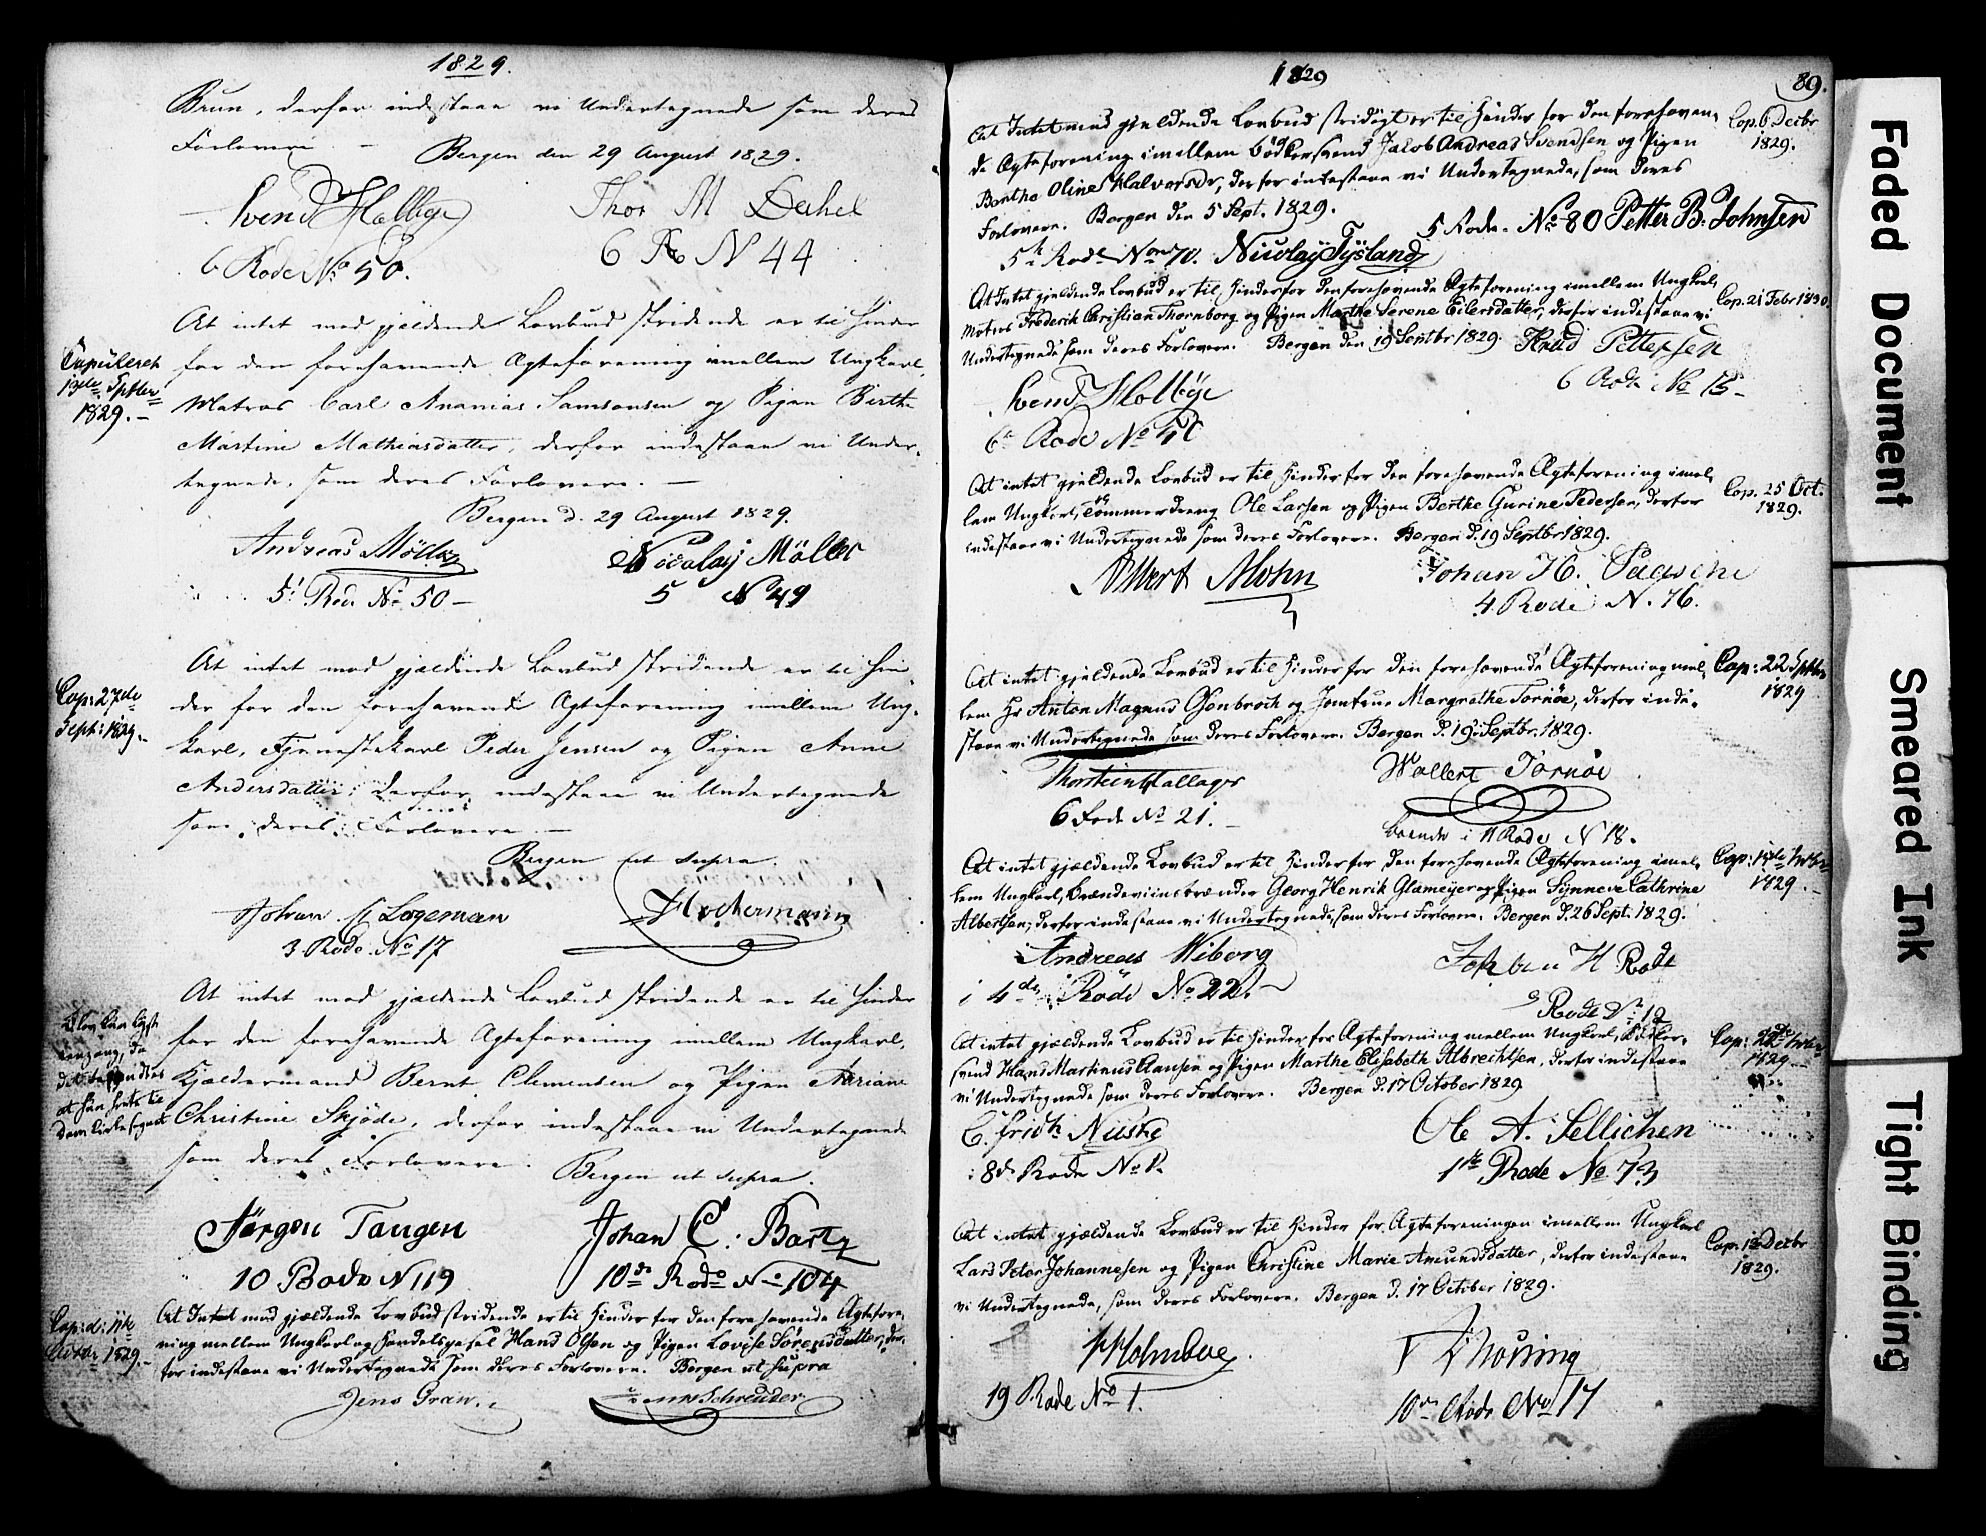 1829.
Brun, derfor indestaae vi Undertegnede som deres
Forlovere. –
Bergen den 29 August 1829.
Svend Holbye
Thor M
6 Rode No 50.
6 R N 44
At intet mod gjældende Lovbud stridende er til Hinder
Copuleret
13de Septbr
1829. –
for den forehavende Ægteforening imellem Ungkarl,
Matros Carl Ananias Samsonsen og Pigen Birthe
Martine Mathiasdatter, derfor indestaae vi Under-
tegnede, som deres Forlovere. –
Bergen d. 29 August 1829.
Andreas Möller
Nicolaÿ Möller
5t Rode No 50 –
5 N 49
At intet mod gjældende Lovbud stridende er til Hin-
Cop: 27de
Sept: 1829. –
der for den forehavende Ægteforening imellem Ung-
karl, Tjenestekarl Peder Jensen og Pigen Anne
Andersdatter, derfor indestaae vi Undertegnede
som deres Forlovere. –
Bergen ut supra.
Johan C Logeman
Hockermann
3 Rode No 17
At intet mod gjældende Lovbud stridende er til Hinder
for den forehavende Ægteforening imellem Ungkarl,
Kjældermand Bernt Clementsen og Pigen Adriane
Christine Skjöde, derfor indestaae vi Undertegnede
som deres Forlovere.
Bergen ut supra.
Jørgen Tangen
Johan C: Bartz
10 Rode N 119
10de Rode No 104
At Intet mod gjældende Lovbud stridende er til Hinder for den forehavende Ægtefore-
Cop: d:
1829. –
ning mellem Ungkarl og Handelsgesel Hans Olsen og Pigen Lovise Sörensdatter, der-
for indestaae vi Undertegnede som deres Forlovere. Bergen ut supra
Jens Gran.
Schreuder
1829
89.
At Intet mod gjældende Lovbud stridigt er til Hinder for den forehaven-
Cop. 6 Decbr
1829.
de Ægteforening imellem Bödkersvend Jacob Andreas Svendsen og Pigen
Berthe Oline Halvorsdr, derfor indestaae vi Undertegnede, som deres
Forlovere. Bergen den 5 Sept. 1829.
5 Rode. No 80 Petter B. Johnsen
5te Rode No 70. Nicolaÿ Tÿsland
At Intet gjældende Lovbud er til Hinder for den forehavende Ægteforening imellem Ungkarl,
Cop. 21 Febr 1830.
Matros Frederik Christian Thornborg og Pigen Marthe Serene Eilersdatter, derfor indestaae vi
Undertegnede som deres Forlovere. Bergen den 19 Septbr 1829.
Knud Pettersen
6 Rode No 15 –
Svend Holbÿe
6te Rode No 50
At intet gjældende Lovbud er til Hinder for den forehavende Ægteforening imel-
Cop. 25 Oct.
1829.
lem Ungkarl, og Tömmerdreng Ole Larsen og Pigen Berthe Gurine Pedersen, derfor
indestaae vi Undertegnede som deres Forlovere. Bergen d. 19 Septbr 1829.
Albert Mohn
Johan H. Paasche
4 Rode N. 76.
At intet gjældende Lovbud er til Hinder for den forehavende Ægteforening imel-
Cop: 22 Septbr
1829
lem Hr Anton Magnus Osenbroch og Jomfrue Margrethe Tornöe, derfor inde-
staae vi Undertegnede som deres Forlovere. Bergen d. 19 Septbr. 1829.
Thorstein Hallager
Wollert Tornöe
6 Rode No 21. –
boende i 11 Rode N 18.
At intet gjældende Lovbud er til Hinder for den forehavende Ægteforening imel-
1829. –
lem Ungkarl, Brændeviinsbrænder Georg Henrik Glameyer og Pigen Synneve Cathrine
Albertsen, derfor indestaae vi Undertegnede, som deres Forlovere. Bergen d. 26 Sept. 1829.
Andreas Wiborg
H Rode
i 4de Rode No 22. –
Rode No 12
At intet gjældende Lovbud er til Hinder for Ægteforening mellem Ungkarl, Bödker-
1829
svend Hans Martinus Clausen og Pigen Marthe Elisabeth Albrechtsen, derfor indestaae
vi Undertegnede som deres Forlovere. Bergen d. 17 October 1829
C. Fridh Nüske
Ole A. Sellichen
i 8de Rode No 1.
1te Rode No 73
At intet gjældende Lovbud er til Hinder for Ægteforeningen imellem Ungkarl
Cop. 13 Decbr
1829.
Lars Peter Johannesen og Pigen Christine Marie Amundsdatter, derfor indestaae
vi Undertegnede, som deres Forlovere. Bergen d. 17 October 1829.
Holmboe
Thorsing
19 Rode No 1.
10de Rode No 17
Faded Document
Smeared Ink
Tight Binding